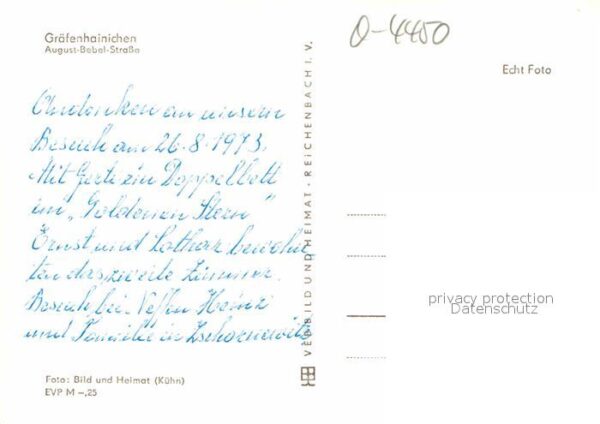 Gräfenhainichen
August-Bebel-Straße
O-4450
Echt Foto
Andenken an unsern
Besuch am 26.8.1973.
Mit Gerte ein Doppelbett
im „Goldenen Stern"
Ernst und Lothar bewohn
ten das zweite Zimmer.
Besuch bei Neffen Heinz
und Familie in Zschornewitz
VEB BILD UND HEIMAT · REICHENBACH I. V.
privacy protection
Datenschutz
Foto: Bild und Heimat (Kühn)
EVP M –,25